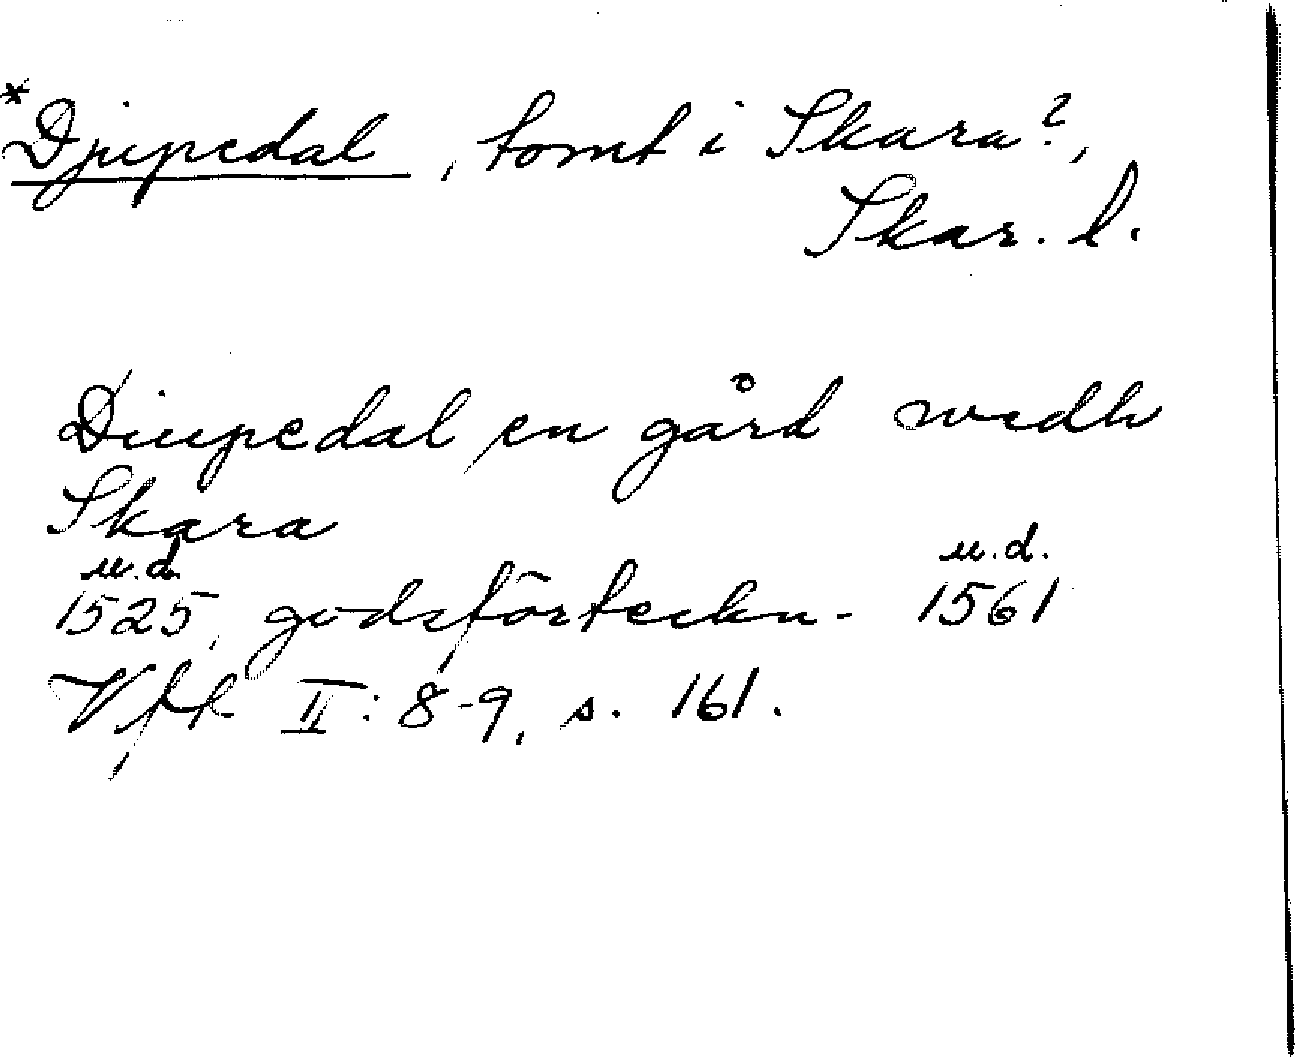 *Djupedal, tomt i Skara?,
Skar. l.
Diupedal en gård wedh
Skara
u.d. u.d.
1525, godsförteckn. 1561
Vfk II: 8-9, s. 161.